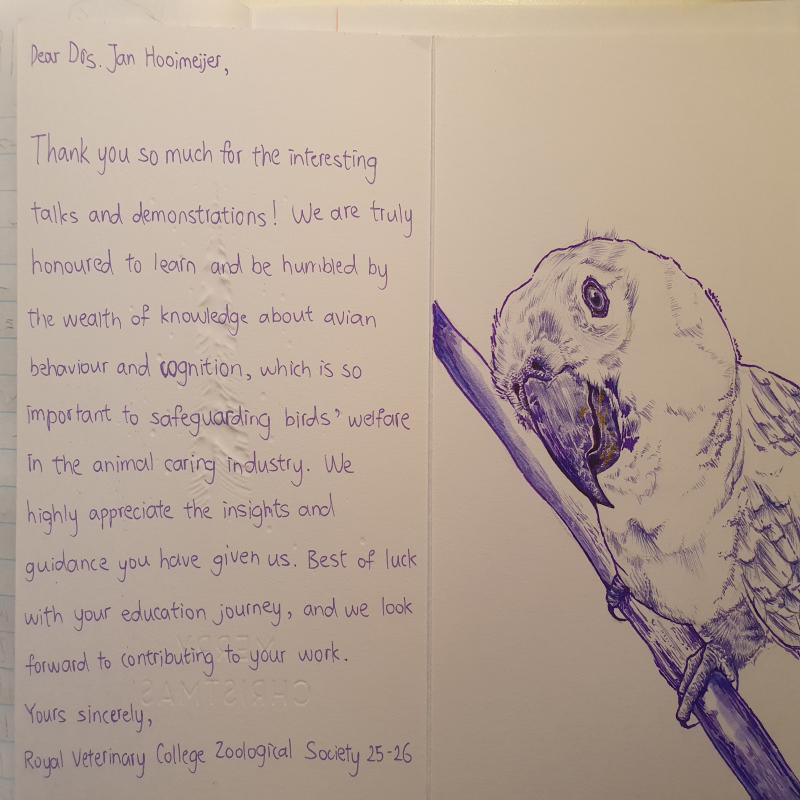 Dear Drs. Jan Hooimeijer,
Thank you so much for the interesting
talks and demonstrations! We are truly
honoured to learn and be humbled by
the wealth of knowledge about avian
behaviour and cognition, which is so
important to safeguarding birds' welfare
in the animal caring industry. We
highly appreciate the insights and
guidance you have given us. Best of luck
with your education journey, and we look
forward to contributing to your work.
MERRY
CHRISTMAS
Yours sincerely,
Royal Veterinary College Zoological Society 25-26